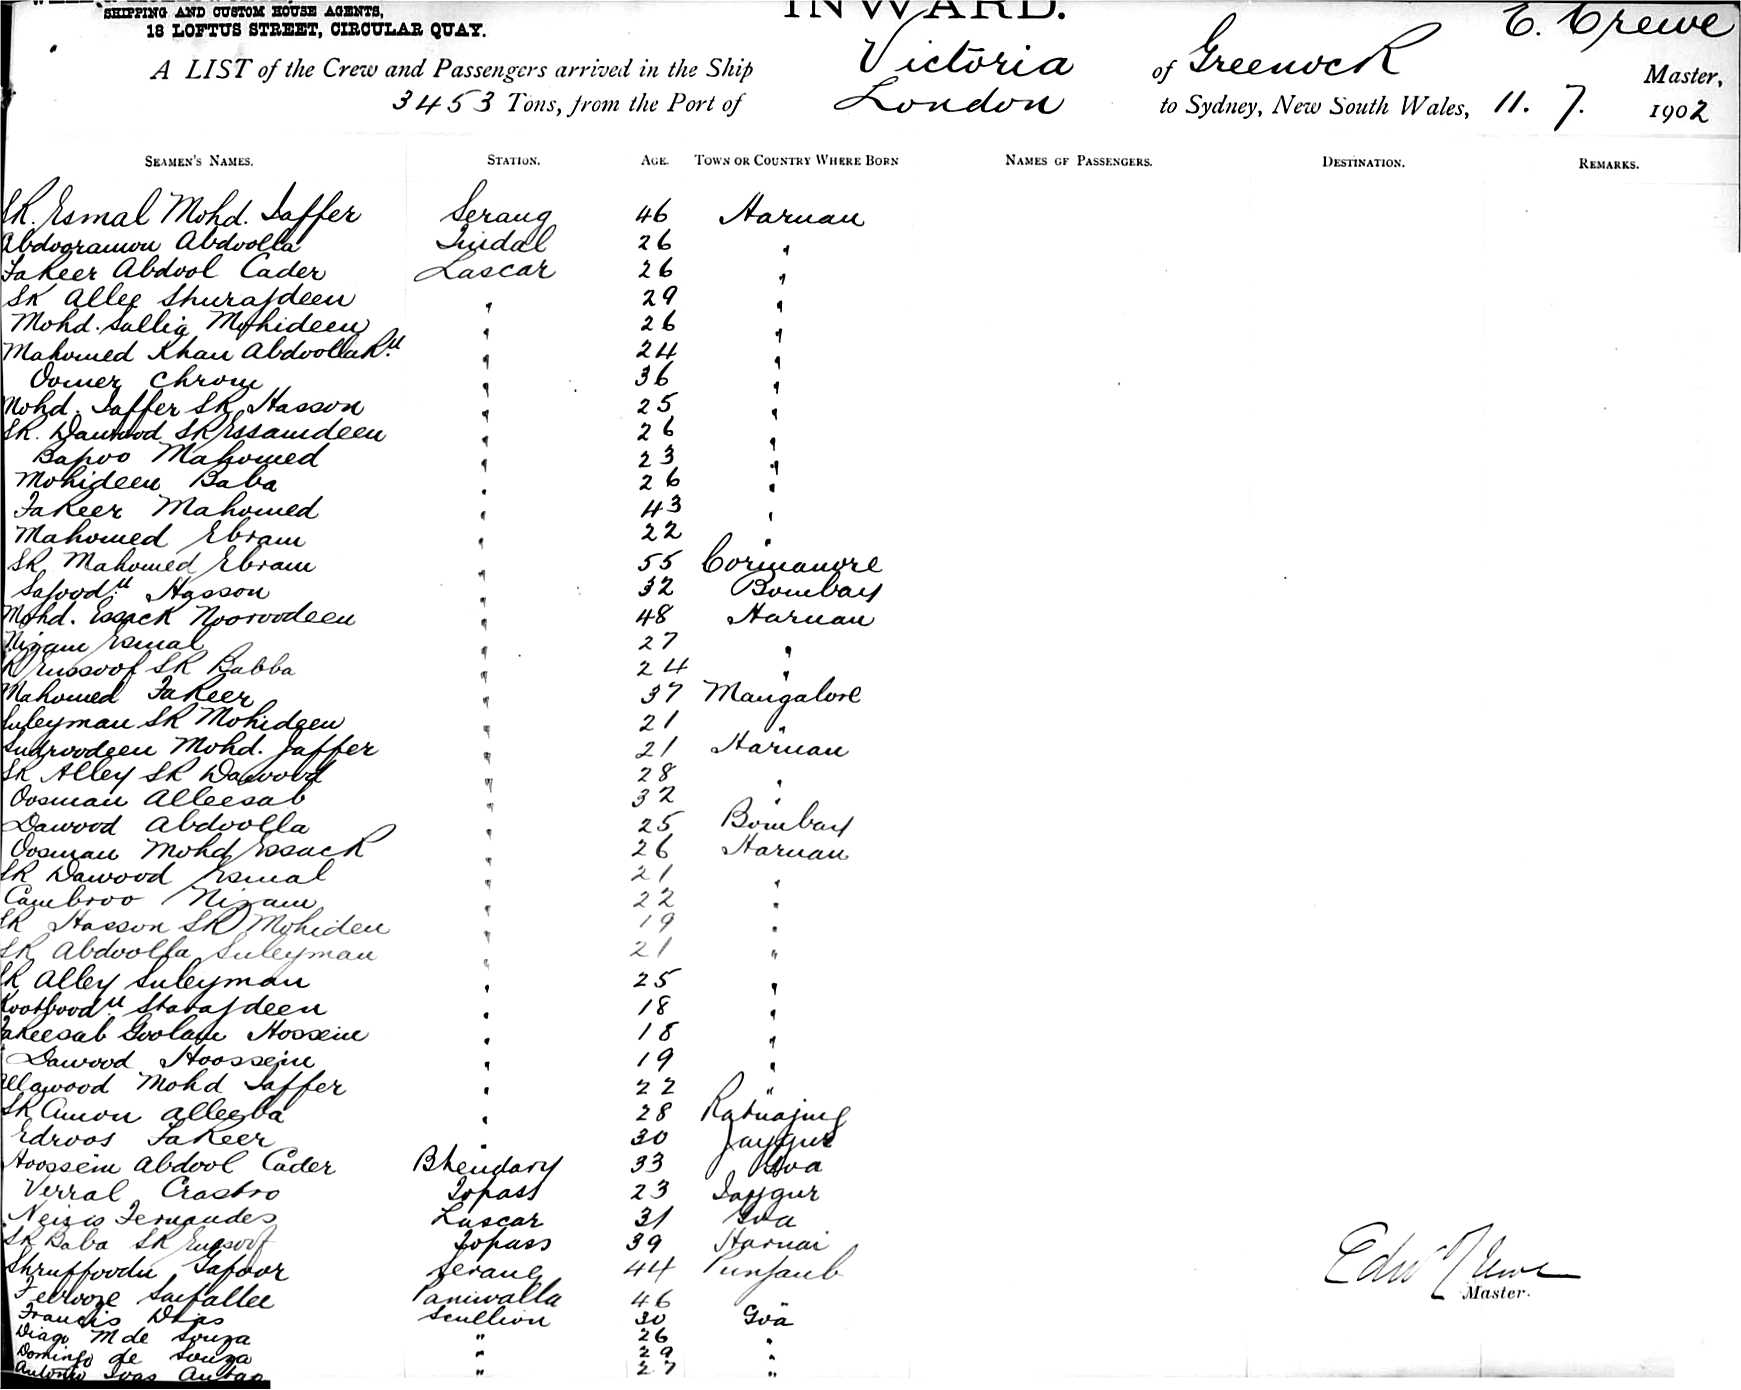 SHIPPING AND CUSTOM HOUSE AGENTS,
18 LOFTUS STREET, CIRCULAR QUAY.
INWARD.
E. Crewe
A LIST of the Crew and Passengers arrived in the Ship Victoria of Greenock Master,
3453 Tons, from the Port of London to Sydney, New South Wales, 11. 7. 1902
SEAMEN'S NAMES. STATION. AGE. TOWN OR COUNTRY WHERE BORN NAMES OF PASSENGERS. DESTINATION. REMARKS.
SK. Esmal Mohd. Jaffer Serang 46 Harnan
Abdogramon Abdoolla Tindal 26 "
Fakeer Abdool Cader Lascar 26 "
SK Allee Shurafdeen " 29 "
Mohd. Sallig Mohideen " 26 "
Mahomed Khan Abdoollak " 24 "
Oomer Chrom " 36 "
Mohd. Jaffer SK Hasson " 25 "
SK. Dawood SK Essamdeen " 26 "
Bapoo Mahomed " 23 "
Mohideen Baba " 26 "
Fakeer Mahomed " 43 "
Mahomed Ebram " 22 "
SK Mahomed Ebram " 55 Cormanore
Hasson " 32 Bombay
Mohd. Essack Nooroodeen " 48 Harnan
Nizam Esmal " 27 "
K Eussoof SK Babba " 24 "
Mahomed Fakeer " 37 Mangalore
Suleyman SK Mohideen " 21 "
Sudroodeen Mohd. Jaffer " 21 Harnan
SK Alley SK Dawood " 28 "
Oosman Alleesab " 32 "
Dawood Abdoolla " 25 Bombay
Oosman Mohd Essack " 26 Harnan
SK Dawood Esmal " 21 "
Cambroo Nizam " 22 "
SK Hasson SK Mohiden " 19 "
SK Abdoolla Suleyman " 21 "
SK Alley Suleyman " 25 "
Sharafdeen " 18 "
Fakeesab Goolam Hossein " 18 "
Dawood Hoossein " 19 "
Mohd Jaffer " 22 "
SK Amon Alleeba " 28
Edroos Fakeer " 30 Jaygur
Hoossein Abdool Cader Bhendary 33 Goa
Verral Crastro Topass 23 Jaygur
Fernandes Lascar 31 Goa
SK Baba SK Eussoof Topass 39 Harnai
Shruffoodn Gafoor Serang 44 Punjaub
Feerooze Saifallee Paniwalla 46
Francis Dias Scullion 30 Goa
Diago M de Souza " 26 "
Domingo de Souza " 29 "
Antonio " 27 "
Edwd Crewe
Master.